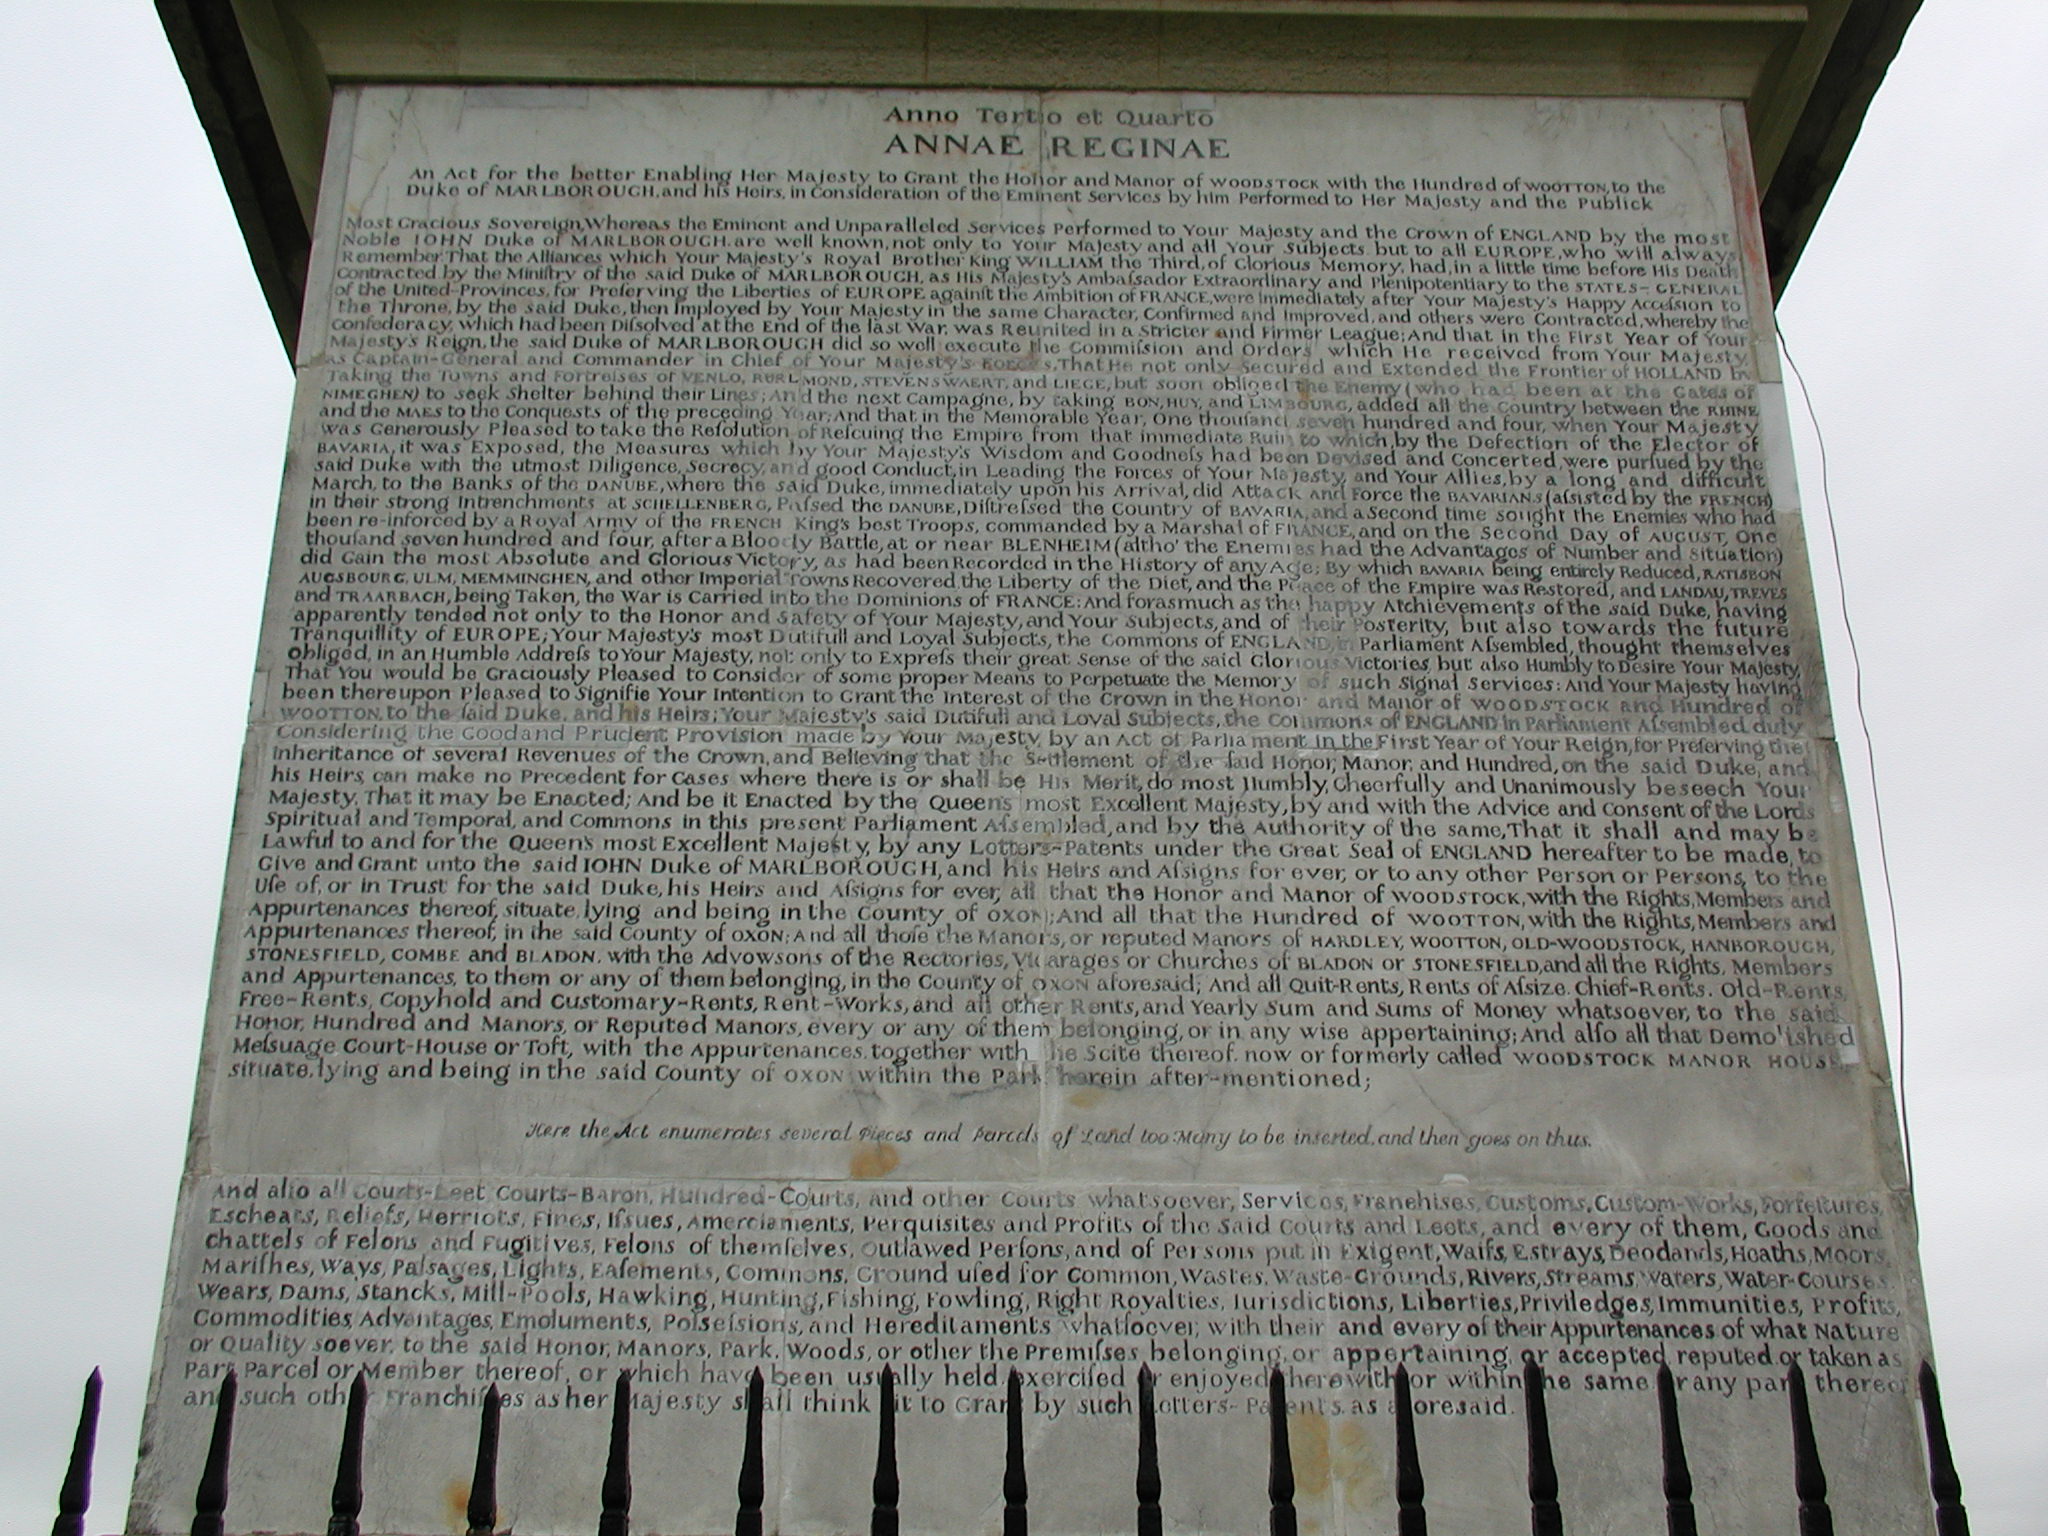 Anno Tertio et Quarto
ANNAE REGINAE
An Act for the better Enabling Her Majesty to Grant the Honor and Manor of WOODSTOCK with the Hundred of WOOTTON, to the
Duke of MARLBOROUGH, and his Heirs, in Consideration of the Eminent Services by him Performed to Her Majesty and the Publick
Most Gracious Sovereign, Whereas the Eminent and Unparalleled Services Performed to Your Majesty and the Crown of ENGLAND by the most
Noble IOHN Duke of MARLBOROUGH. are well known, not only to Your Majesty and all Your Subjects but to all EUROPE, who will always
Remember That the Alliances which Your Majesty's Royal Brother King WILLIAM the Third, of Glorious Memory, had, in a little time before His Death
Contracted by the Miniſtry of the said Duke of MARLBOROUGH, as His Majesty's Ambaſsador Extraordinary and Plenipotentiary to the STATES-GENERAL
of the United-Provinces, for Preſerving the Liberties of EUROPE againſt the Ambition of FRANCE, were immediately after Your Majesty's Happy Acceſsion to
the Throne, by the said Duke, then Imployed by Your Majesty in the same Character, Confirmed and Improved, and others were Contracted, whereby the
Confederacy, which had been Diſsolved at the End of the last War, was Reunited in a Stricter and Firmer League; And that in the First Year of Your
Majesty's Reign, the said Duke of MARLBOROUGH did so well execute the Commiſsion and Orders which He received from Your Majesty
as Captain-General and Commander in Chief of Your Majesty's FORCES, That He not only Secured and Extended the Frontier of HOLLAND by
Taking the Towns and Fortreſses of VENLO, RURLMOND, STEVENSWAERT, and LIEGE, but soon obliged the Enemy (who had been at the Gates of
NIMEGHEN) to seek Shelter behind their Lines; And the next Campagne, by taking BON, HUY, and LIMBOURG, added all the Country between the RHINE
and the MAES to the Conquests of the preceding Year; And that in the Memorable Year, One thouſand seven hundred and four, when Your Majesty
was Generously Pleased to take the Reſolution of Reſcuing the Empire from that immediate Ruin to which by the Defection of the Elector of
BAVARIA, it was Exposed, the Measures which by Your Majesty's Wisdom and Goodneſs had been Devised and Concerted, were purſued by the
said Duke with the utmost Diligence, Secrecy, and good Conduct, in Leading the Forces of Your Majesty, and Your Allies, by a long and difficult
March, to the Banks of the DANUBE, where the said Duke, immediately upon his Arrival, did Attack and Force the BAVARIANS (aſsisted by the FRENCH)
in their strong Intrenchments at SCHELLENBERG, Paſsed the DANUBE, Diſtreſsed the Country of BAVARIA, and a Second time sought the Enemies who had
been re-inforced by a Royal Army of the FRENCH King's best Troops, commanded by a Marshal of FRANCE, and on the Second Day of AUGUST, One
thouſand seven hundred and four, after a Bloody Battle, at or near BLENHEIM (altho' the Enemies had the Advantages of Number and Situation)
did Gain the most Absolute and Glorious Victory, as had been Recorded in the History of any Age; By which BAVARIA being entirely Reduced, RATISBON
AUGSBOURG, ULM, MEMMINGHEN, and other Imperial Towns Recovered the Liberty of the Diet, and the Peace of the Empire was Restored, and LANDAU, TREVES
and TRAARBACH, being Taken, the War is Carried into the Dominions of FRANCE: And forasmuch as the happy Atchievements of the said Duke, having
apparently tended not only to the Honor and Safety of Your Majesty, and Your Subjects, and of their Posterity, but also towards the future
Tranquillity of EUROPE; Your Majesty's most Dutifull and Loyal Subjects, the Commons of ENGLAND in Parliament Aſsembled, thought themselves
obliged, in an Humble Addreſs to Your Majesty, not only to Expreſs their great Sense of the said Glorious Victories, but also Humbly to Desire Your Majesty,
That You would be Graciously Pleased to Consider of some proper Means to Perpetuate the Memory of such Signal Services: And Your Majesty having
been thereupon Pleased to Signifie Your Intention to Grant the Interest of the Crown in the Honor and Manor of WOODSTOCK and Hundred of
WOOTTON, to the ſaid Duke, and his Heirs; Your Majesty's said Dutifull and Loyal Subjects, the Commons of ENGLAND in Parliament Aſsembled, duly
Considering the Good and Prudent Provision made by Your Majesty, by an Act of Parliament in the First Year of Your Reign, for Preſerving the
Inheritance of several Revenues of the Crown, and Believing that the Settlement of the ſaid Honor, Manor, and Hundred, on the said Duke, and
his Heirs, can make no Precedent for Cases where there is or shall be His Merit, do most Humbly, Cheerfully and Unanimously beseech Your
Majesty, That it may be Enacted; And be it Enacted by the Queen's most Excellent Majesty, by and with the Advice and Consent of the Lords
Spiritual and Temporal, and Commons in this present Parliament Aſsembled, and by the Authority of the same, That it shall and may be
Lawful to and for the Queen's most Excellent Majeſty, by any Letters-Patents under the Great Seal of ENGLAND hereafter to be made, to
Give and Grant unto the said IOHN Duke of MARLBOROUGH, and his Heirs and Aſsigns for ever, or to any other Person or Persons, to the
Uſe of, or in Trust for the said Duke, his Heirs and Aſsigns for ever, all that the Honor and Manor of WOODSTOCK, with the Rights, Members and
Appurtenances thereof, situate, lying and being in the County of OXON; And all that the Hundred of WOOTTON, with the Rights, Members and
Appurtenances thereof, in the said County of OXON; And all thoſe the Manors, or reputed Manors of HARDLEY, WOOTTON, OLD-WOODSTOCK, HANBOROUGH,
STONESFIELD, COMBE and BLADON, with the Advowsons of the Rectories, Vicarages or Churches of BLADON or STONESFIELD, and all the Rights, Members
and Appurtenances, to them or any of them belonging, in the County of OXON aforesaid; And all Quit-Rents, Rents of Aſsize, Chief-Rents, Old-Rents,
Free-Rents, Copyhold and Customary-Rents, Rent-Works, and all other Rents, and Yearly Sum and Sums of Money whatsoever, to the said
Honor, Hundred and Manors, or Reputed Manors, every or any of them belonging, or in any wise appertaining; And alſo all that Demolished
Meſsuage Court-House or Toft, with the Appurtenances, together with the Scite thereof, now or formerly called WOODSTOCK MANOR HOUSE
situate, lying and being in the said County of OXON within the Park herein after-mentioned;
Here the Act enumerates several Pieces and Parcels of Land too Many to be inserted, and then goes on thus.
And alſo all Courts-Leet, Courts-Baron, Hundred-Courts, and other Courts whatsoever, Services, Franchises, Customs, Custom-Works, Forfeitures,
Escheats, Reliefs, Herriots, Fines, Iſsues, Amerciaments, Perquisites and Profits of the said Courts and Leets, and every of them, Goods and
Chattels of Felons and Fugitives, Felons of themſelves, Outlawed Perſons, and of Persons put in Exigent, Waifs, Estrays, Deodands, Heaths, Moors,
Mariſhes, Ways, Paſsages, Lights, Eaſements, Commons, Ground uſed for Common, Wastes, Waste-Grounds, Rivers, Streams, Waters, Water-Courses,
Wears, Dams, Stancks, Mill-Pools, Hawking, Hunting, Fishing, Fowling, Right Royalties, Iurisdictions, Liberties, Priviledges, Immunities, Profits,
Commodities, Advantages, Emoluments, Poſseſsions, and Hereditaments whatſoever, with their and every of their Appurtenances of what Nature
or Quality soever, to the said Honor, Manors, Park, Woods, or other the Premiſes belonging, or appertaining, or accepted, reputed, or taken as
Part Parcel or Member thereof, or which have been usually held, exerciſed or enjoyed therewith or within the same or any part thereof
and such other Franchiſes as her Majesty shall think fit to Grant by such Letters-Patents, as aforesaid.